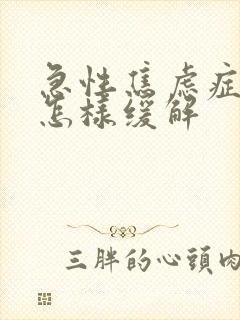 急性焦虑症
怎樣缓解
三胖的心頭肉